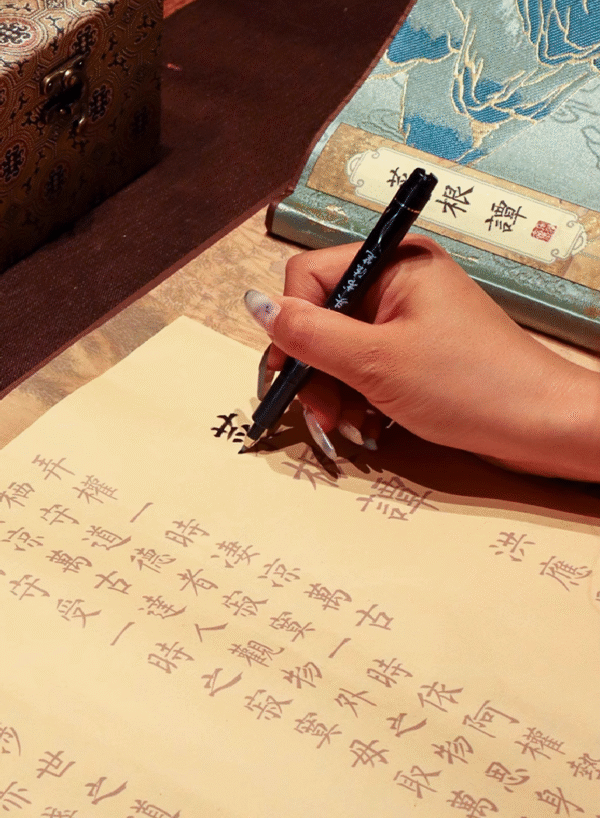 菜根譚
菜根譚
洪應
弄權一時凄涼萬古
栖守道德者寂寞一時依阿權勢
涼萬古達人觀物外之物思身
守受一時之寂寞毋取萬
世之道
亦